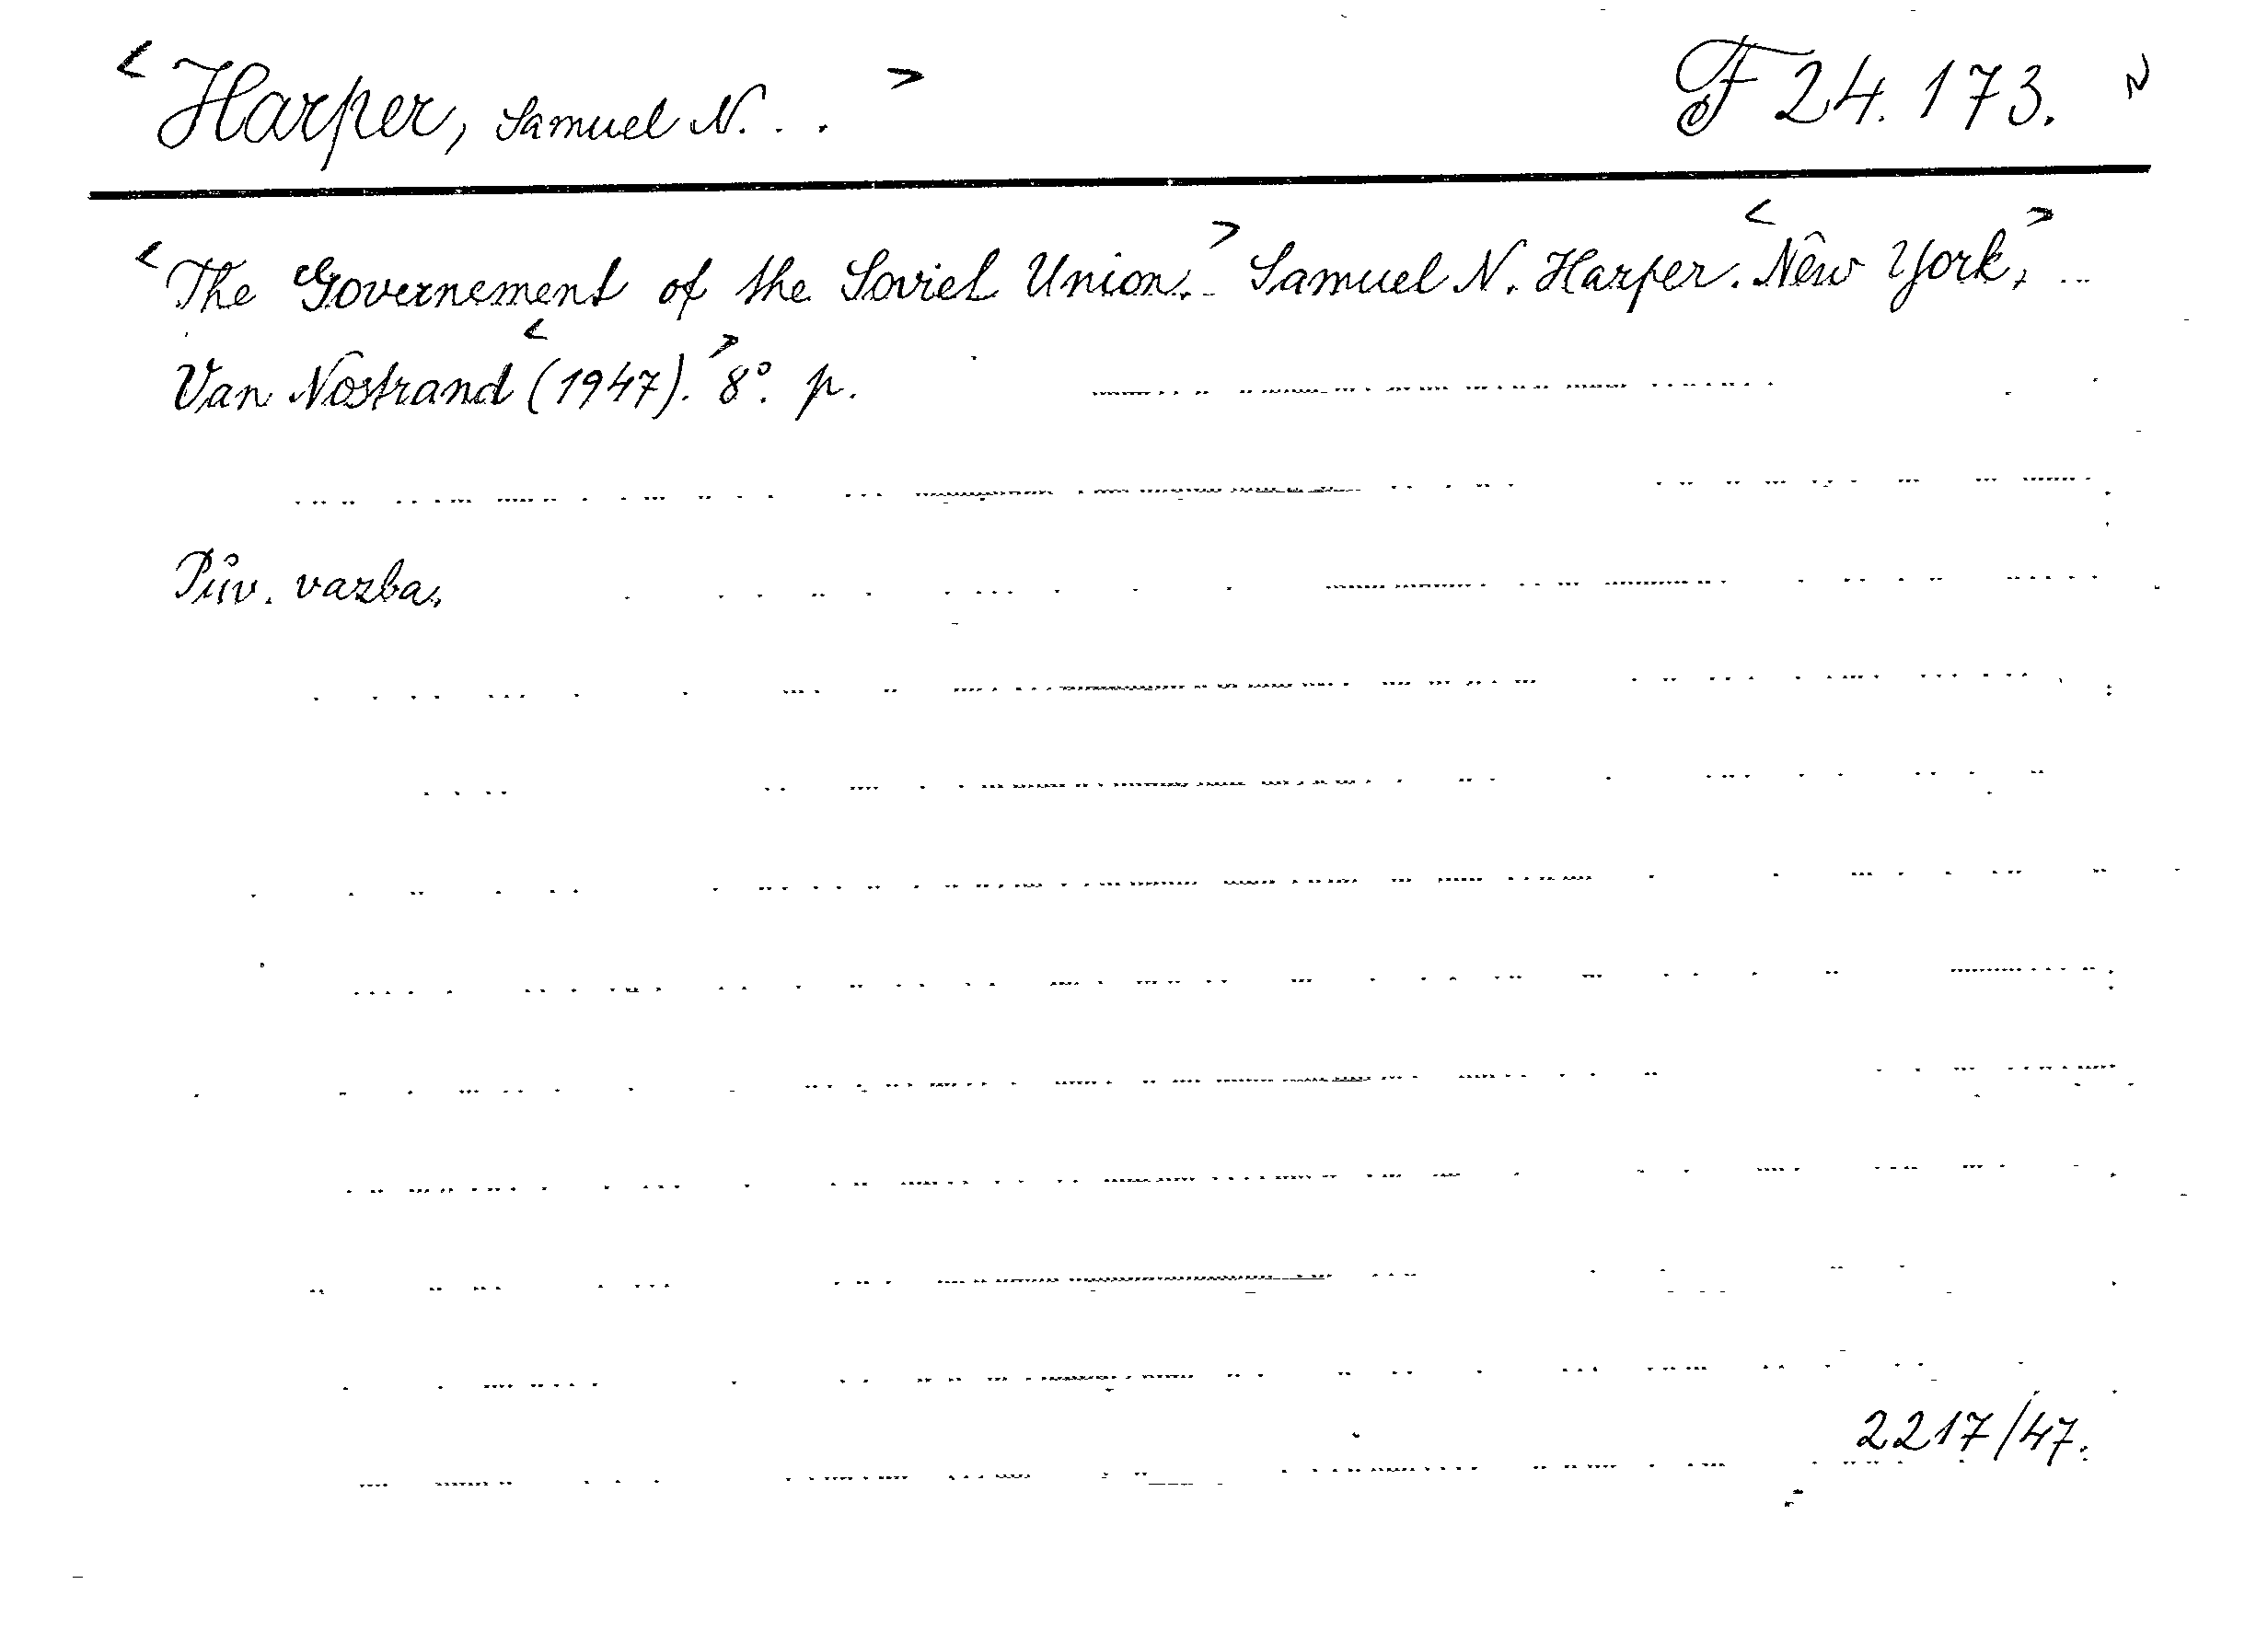 <Harper, Samuel N. . .> F 24.173. N
<The Governement of the Soviet Union.> Samuel N. Harper. <New York,>
Van Nostrand <(1947).> 8°. p.
Pův. vazba.
2217/47.